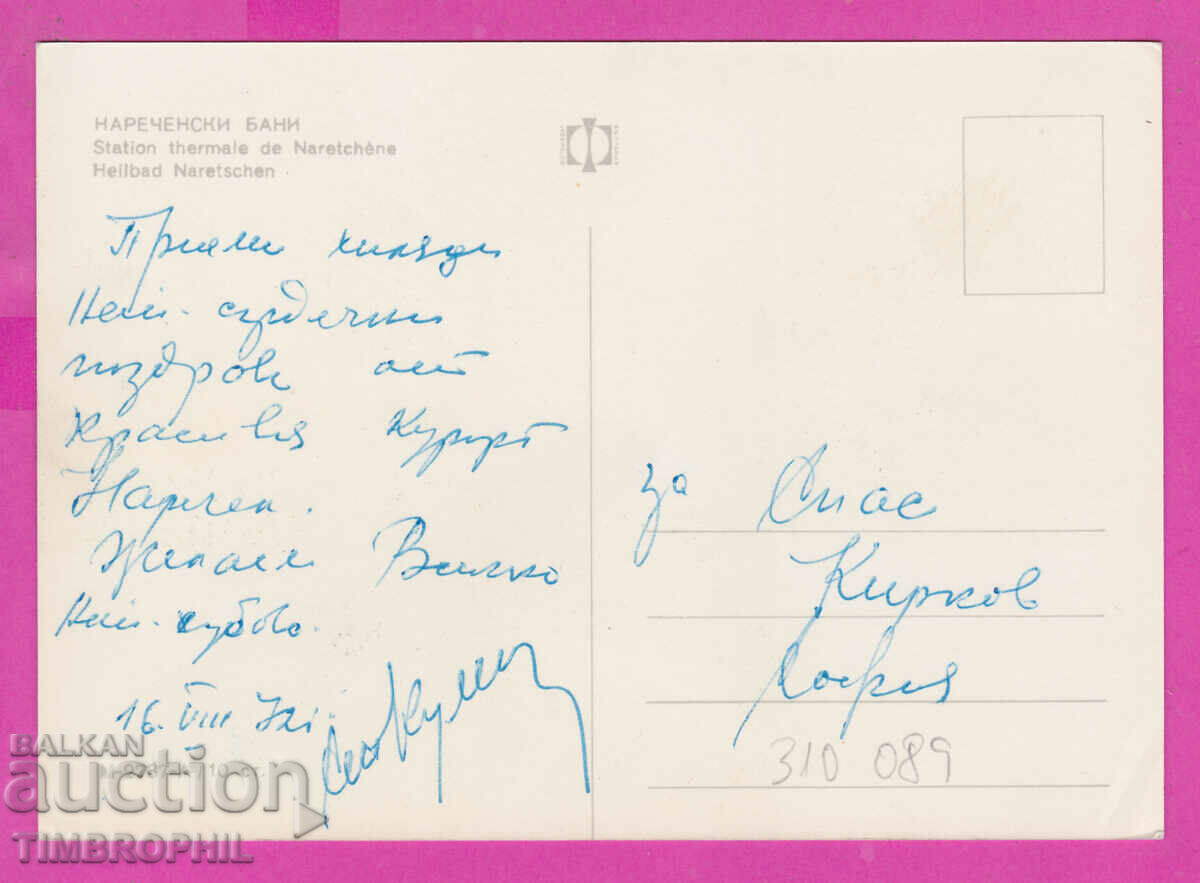 НАРЕЧЕНСКИ БАНИ
Station thermale de Naretchène
Heilbad Naretschen
Приеми хиляди
Най-сърдечни
поздрави от
Красивия Курорт
Наречен.
Желаем Всичко
Най-хубаво.
16. VIII 72г.
за Спас
Кирков
София
310 089
BALKAN
auction
TIMBROPHIL